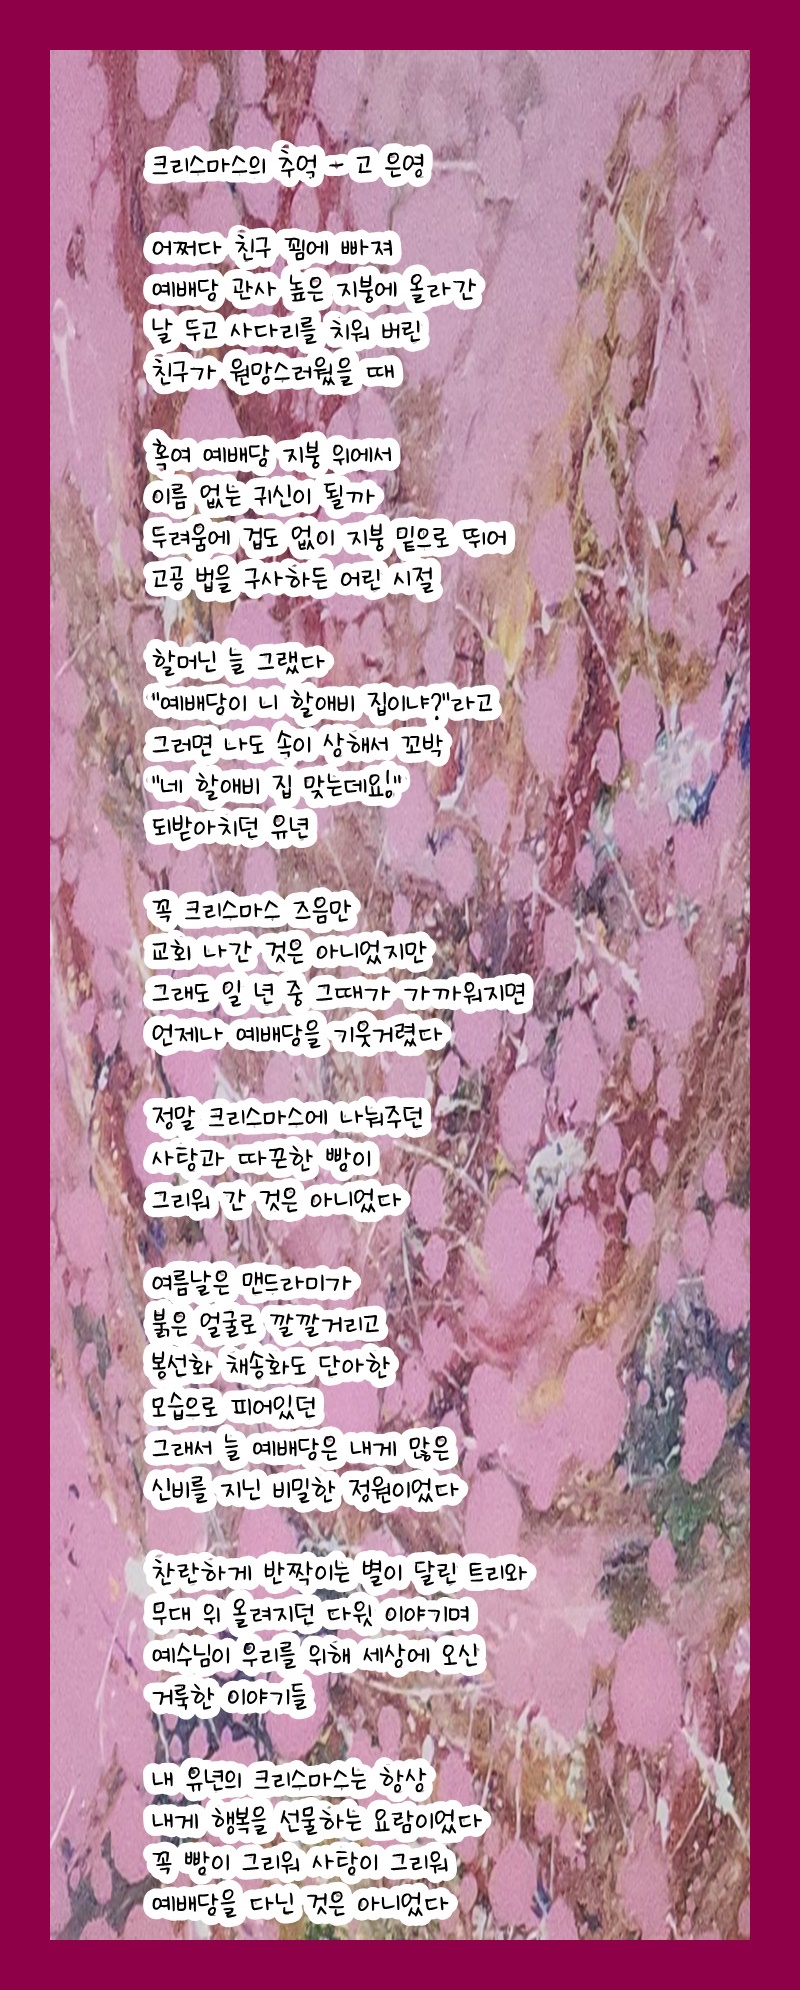 크리스마스의 추억 - 고 은영
어쩌다 친구 꾐에 빠져
예배당 관사 높은 지붕에 올라간
날 두고 사다리를 치워 버린
친구가 원망스러웠을 때
혹여 예배당 지붕 위에서
이름 없는 귀신이 될까
두려움에 겁도 없이 지붕 밑으로 뛰어
고공 법을 구사하든 어린 시절
할머닌 늘 그랬다
"예배당이 니 할애비 집이냐?"라고
그러면 나도 속이 상해서 꼬박
"네 할애비 집 맞는데요!"
되받아치던 유년
꼭 크리스마스 즈음만
교회 나간 것은 아니었지만
그래도 일 년 중 그때가 가까워지면
언제나 예배당을 기웃거렸다
정말 크리스마스에 나눠주던
사탕과 따끈한 빵이
그리워 간 것은 아니었다
여름날은 맨드라미가
붉은 얼굴로 깔깔거리고
봉선화 채송화도 단아한
모습으로 피어있던
그래서 늘 예배당은 내게 많은
신비를 지닌 비밀한 정원이었다
찬란하게 반짝이는 별이 달린 트리와
무대 위 올려지던 다윗 이야기며
예수님이 우리를 위해 세상에 오산
거룩한 이야기들
내 유년의 크리스마스는 항상
내게 행복을 선물하는 요람이었다
꼭 빵이 그리워 사탕이 그리워
예배당을 다닌 것은 아니었다